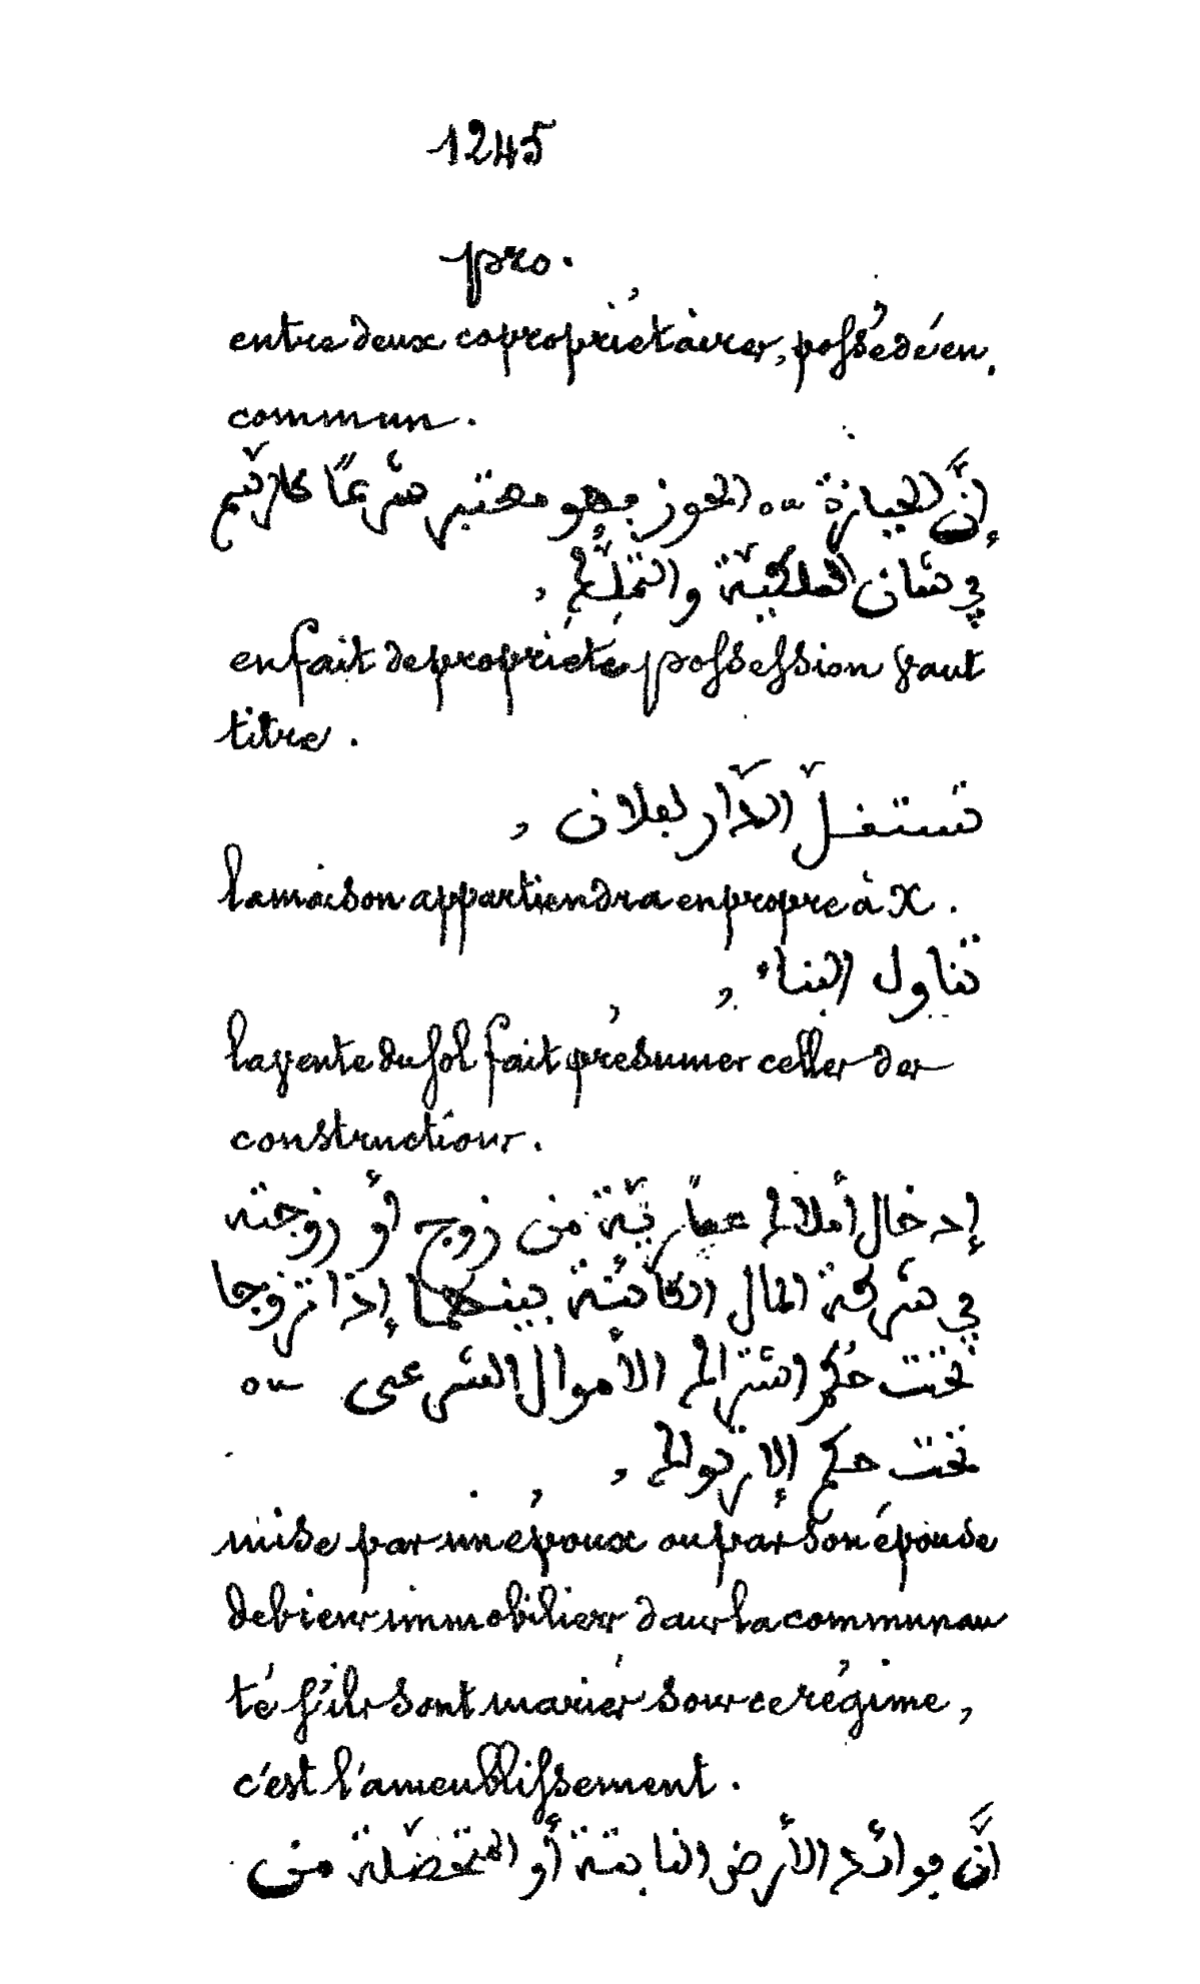 1245
pro.
entre deux copropriétaires, possédé en
commun.
إنَّ الحيازة ou الحوز فهو معتبر شرعًا كالرّسم
في شان الملكيّة والتّملّك,
en fait de propriété possession vaut
titre.
تستغلّ الدّار لفلان,
la maison appartiendra en propre à X.
تناول البناء,
la vente du sol fait présumer celles des
constructions.
إدخال أملاك عقاريّة من زوج أو زوجته
في شركة المال الكائنة بينهما إذا تزوجا
تحت حكم اشتراك الأموال الشرعى ou
تحت حكم
mise par un époux ou par son épouse
de biens immobiliers dans la communau
té s'ils sont mariés sous ce régime,
c'est l'ameublissement.
انّ فوائد الأرض النابتة أو المتحصّلة من